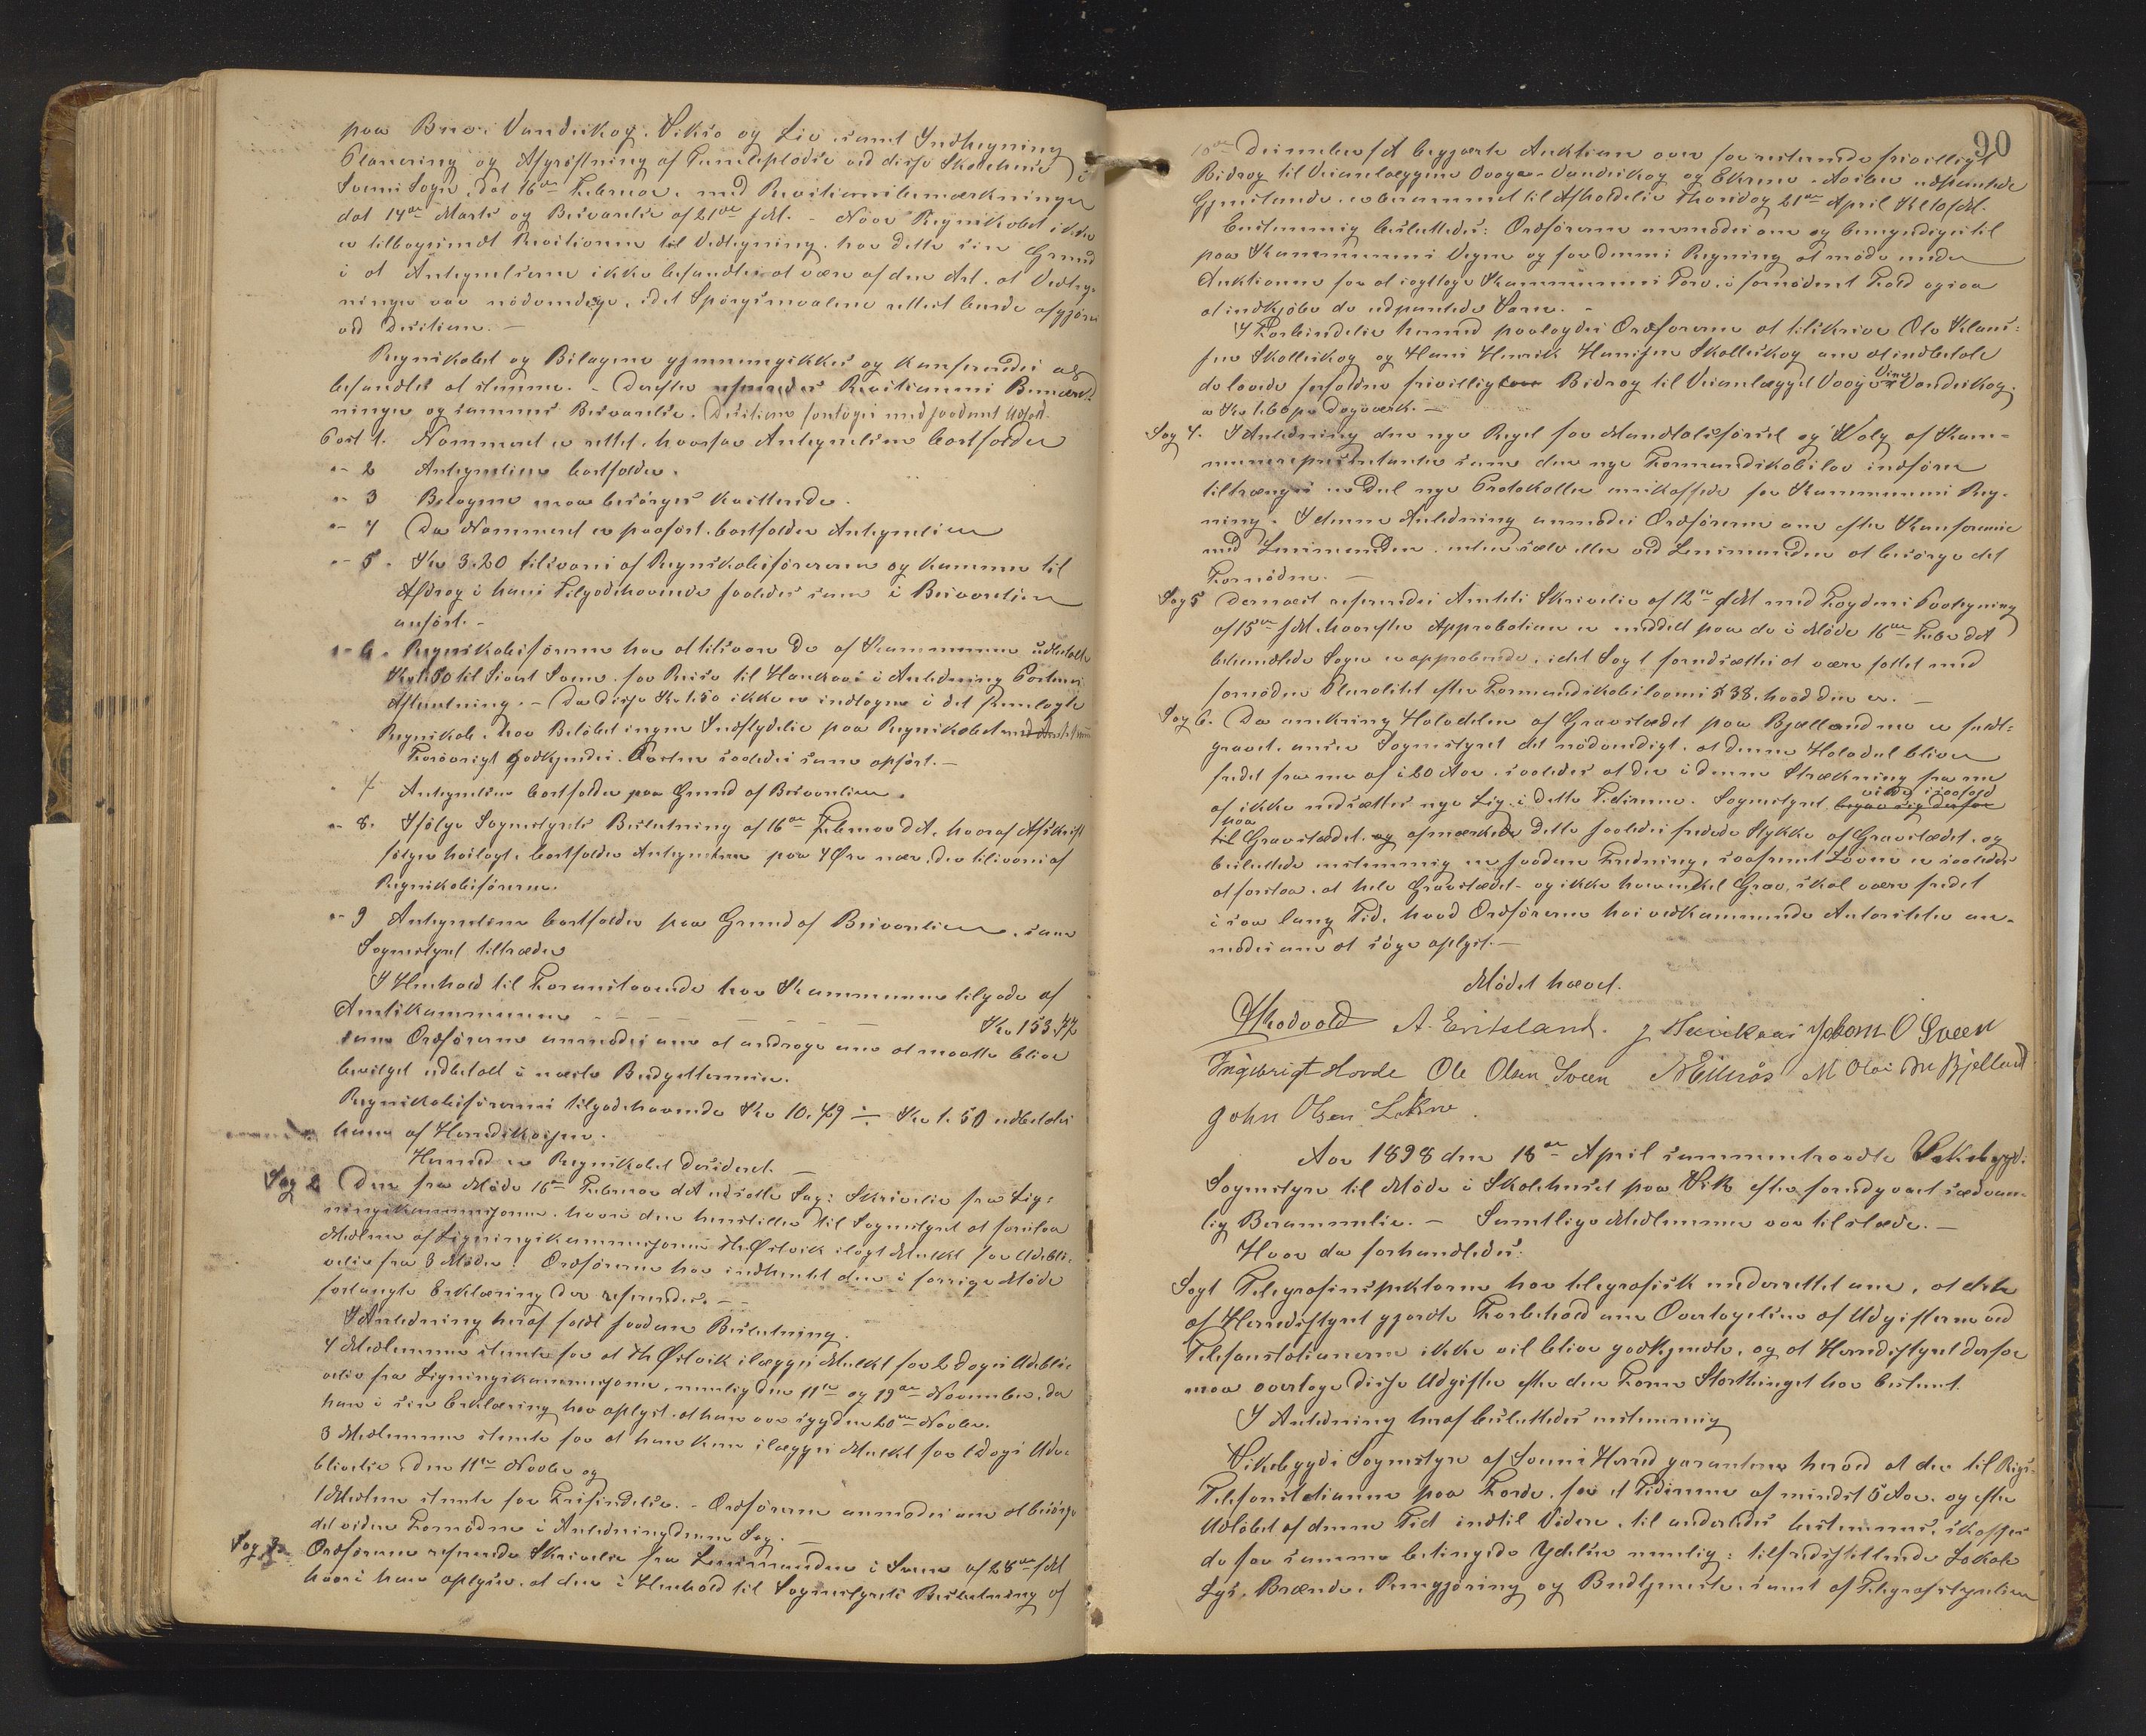 paa Brue i Vandsskog, Viksø og Lie samt Indhegning
Planering og Afgrøftning af Hustepladse ved disse Skolehuse i
Sveens Sogn, dat 16de Februar, med Revisionsbemærkninger
dat 14de Marts og Besvarelse af 21de s. M. - Naar Regnskabet ikke
er tilbagesendt Revisionen til Vedtegning, har dette sin Grund
i at Antegnelserne ikke befandtes at være af den Art, at Vedteg-
ninger var nødvendige, idet Spørgsmaalene rettest burde afgjøres
ved Decision. -
Regnskabet og Bilagene gjennemgikkes og konfereredes og
befandtes at stemme. - Derefter refereredes Revisionens Bemærk-
ninger og sammes Besvarelse. Decision foretoges med saadant Udfald.
Post 1. Nummeret er rettet, hvorfor Antegnelsen bortfalder
"- 2 Antegnelsen bortfalder.
"- 3 Bilagene maa besørges kvitterede.
"- 4 Da Nummeret er paaført, bortfalder Antegnelsen
"- 5. Kr 3.20 tilsvares af Regnskabsføreren og kommer til
Afdrag i hans Tilgodehavende saaledes som i Besvarelsen
anført. -
"- 6. Regnskabsføreren har at tilsvare de af Kommunen udbetalte
Kr 1.50 til Sivert Sveen for Reise til Haukaas i Anledning Postens
Afhentning. - Da disse Kr 1.50 ikke er indtagne i det fremlagte
Regnskab, har Beløbet ingen Indflydelse paa Regnskabet
Forøvrigt godkjendes Posten saaledes som opført. -
7. Antegnelsen bortfalder paa Grund af Besvarelsen.
"- 8. Ifølge Sognestyrets Beslutning af 16de Februar d. A., hvoraf Afskrift
følger hoslagt, bortfalder Antegnelsen paa 4 Øre nær, der tilsvares af
Regnskabsføreren.
"- 9 Antegnelsen bortfalder paa Grund af Besvarelsen, som
Sognestyret tiltræder
I Henhold til Foranstaaende har Kommunen tilgode af
Amtskommunen - - - - - - Kr 153.72
som Ordføreren anmodes om at andrage om at maatte blive
bevilget udbetalt i næste Budgettermin.
Regnskabsførerens Tilgodehavende Kr 10.79 ÷ Kr 1.50 udbetales
ham af Herredskassen.
Hermed er Regnskabet desideret. -
Sag 2 Den fra Møde 16de Februar d. A. udsatte Sag: Skrivelse fra Lig-
ningskommisjonen, hvori den henstiller til Sognestyret at forelaa
Medlem af Ligningskommisjonen Th. Øisvik ilagt Mulkt for Udebli-
velse fra 3 Møder. Ordføreren har indhentet den i forrige Møde
forlangte Erklæring der refereredes. -
I Anledning heraf faldt saadan Beslutning.
4 Medlemmer stemte for at Th Øisvik ilægges Mulkt for 2 Dages Udebli-
velse fra Ligningskommisjonen, nemlig den 11te og 19de November, da
han i sin Erklæring har oplyst, at han var syg den 20de Novbr.
3 Medlemmer stemte for at han kun ilægges Mulkt for 1 Dags Ude-
blivelse, den 11te Novbr og
1 Medlem stemte for Frifindelse. - Ordføreren anmodes om at besørge
det videre Fornødne i Anledning denne Sag.
Sag 3. Ordføreren refererede Skrivelse fra Lensmanden i Sveen af 28de f. M.
hvori han oplyser, at den i Henhold til Sognestyrets Beslutning af
90
10de December f. A. begjærte Auktion over for resterende frivilligt
Bidrag til Veianlæggene Vaage-Vandsskog og Ekrene - udpantede
Gjenstande, er berammet til Afholdelse Thorsdag 21de April Kl 10 FM.
Enstemmig besluttedes: Ordføreren anmodes om og bemyndiges til
paa Kommunens Vegne og for dennes Regning at møde under
Auktionen for at iagttage Kommunens Tarv, i fornødent Fald ogsaa
at indkjøbe de udpantede Varer. -
I Forbindelse hermed paalagdes Ordføreren at tilskrive Ole Klaus-
sen Skollsskog og Hans Henrik Hansen Skollsskog om at indbetale
de lovede forfaldne frivillige Bidrag til Veianlægget Vaage Vandsskog,
a Kr 1.60 pr Dagværk. -
Sag 4. I Anledning den nye Regel for Mandtalsførsel og Valg af Kom-
munerepresentanter som den nye Formandskabslov indfører
tiltrænges en Del nye Protokoller anskaffede for Kommunens Reg-
ning. I denne Anledning anmodes Ordføreren om efter Konferense
med Lensmanden, enten selv eller ved Lensmanden at besørge det
Fornødne. -
Sag 5 Dernæst refereredes Amtets Skrivelse af 12te f M med Fogdens Paategning
af 15de s M. hvorefter Approbation er meddelt paa de i Møde 16de Febr d A
behandlede Sager approberede, idet Sag 1 forudsættes at være fattet med
fornøden Pluralitet efter Formandskabslovens § 38, hvad den er. -
Sag 6. Da omkring Halvdelen af Gravstedet paa Bjelland nu er fuldt-
gravet, anser Sognestyret det nødvendigt, at denne Halvdel bliver
fredet fra nu af i 20 Aar, saaledes at der i denne Strækning fra nu
af ikke nedsættes nye Lig i dette Tidsrum. Sognestyret
paa Gravstedet afmærkede dette saaledes fredede Stykke af Gravstedet, og
besluttede enstemmig en saadan Fredning, saafremt Loven er saaledes
at forstaa, at hele Gravstedet - og ikke hver enkel Grav, skal være fredet
i saa lang Tid, hvad Ordføreren hos vedkommende Autoriteter an-
modes om at søge oplyst. -
Mødet hævet.
A. Erikland. J. Haukaas Johan O Sveen
Ingebrigt Hovde Ole Olsen Sveen N Eilerås M Olai Bjelland
John Olsen Løkne.
Aar 1898 den 18de April sammentraadte Vikebygds
Sognestyre til Møde i Skolehuset paa Vik efter forudgaaet sædvan-
lig Berammelse. - Samtlige Medlemmer var tilstæde. -
Hvor da forhandledes:
Sag 1 Telegrafinspektøren har telegrafisk underrettet om, at dette
af Herredsstyret gjorte Forbehold om Overtagelsen af Udgifterne ved
Telefonstationerne ikke vil blive godkjendte, og at Herredsstyret derfor
maa overtage disse Udgifter efter den Form Storthinget har bestemt.
I Anledning heraf besluttedes enstemmig
Vikebygds Sognestyre af Sveens Herred garanterer herved at der til Rigs-
Telefonstationen paa Førde, for et Tidsrum af mindst 5 Aar, og efter
Udløbet af denne Tid indtil Videre, til anderledes bestemmes, skaffes
de for samme betingede Ydelser nemlig: tilfredsstillende Lokale
Lys, Brænde, Rengjøring og Budtjeneste, samt af Telegrafstyrelsen